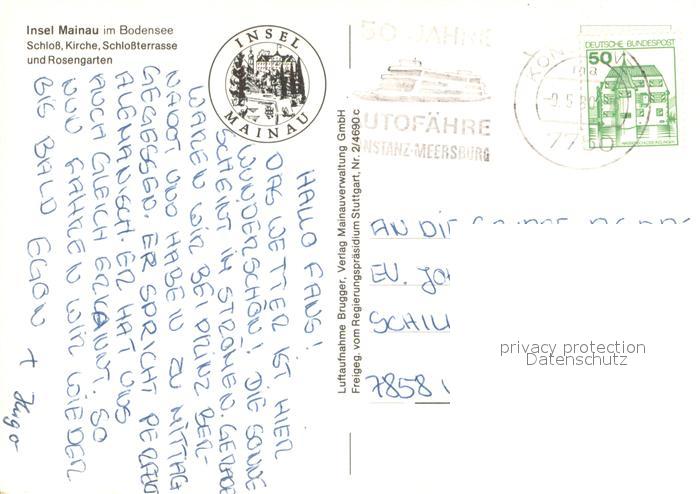 Insel Mainau im Bodensee
Schloß, Kirche, Schloßterrasse
und Rosengarten
INSEL
MAINAU
HALLO FANS!
DAS WETTER IST HIER
WUNDERSCHÖN! DIE SONNE
SCHEINT IM STRÖMEN. GERADE
WAREN WIR BEI PRINZ BER-
NADOT UND HABEN ZU MITTAG
GEGESSEN. ER SPRICHT PERFEKT
ALEMANISCH. ER HAT UNS
AUCH GLEICH ERKANNT. SO
NUN FAHREN WIR WIEDER
BIS BALD EGON + Hugo
Luftaufnahme Brugger, Verlag Mainauverwaltung GmbH
Freigeg. vom Regierungspräsidium Stuttgart, Nr. 2/4690 c
50 JAHRE
AUTOFÄHRE
KONSTANZ-MEERSBURG
KON
7750
DEUTSCHE BUNDESPOST
50
AN DIE
EV. JO
SCHIL
7858
privacy protection
Datenschutz